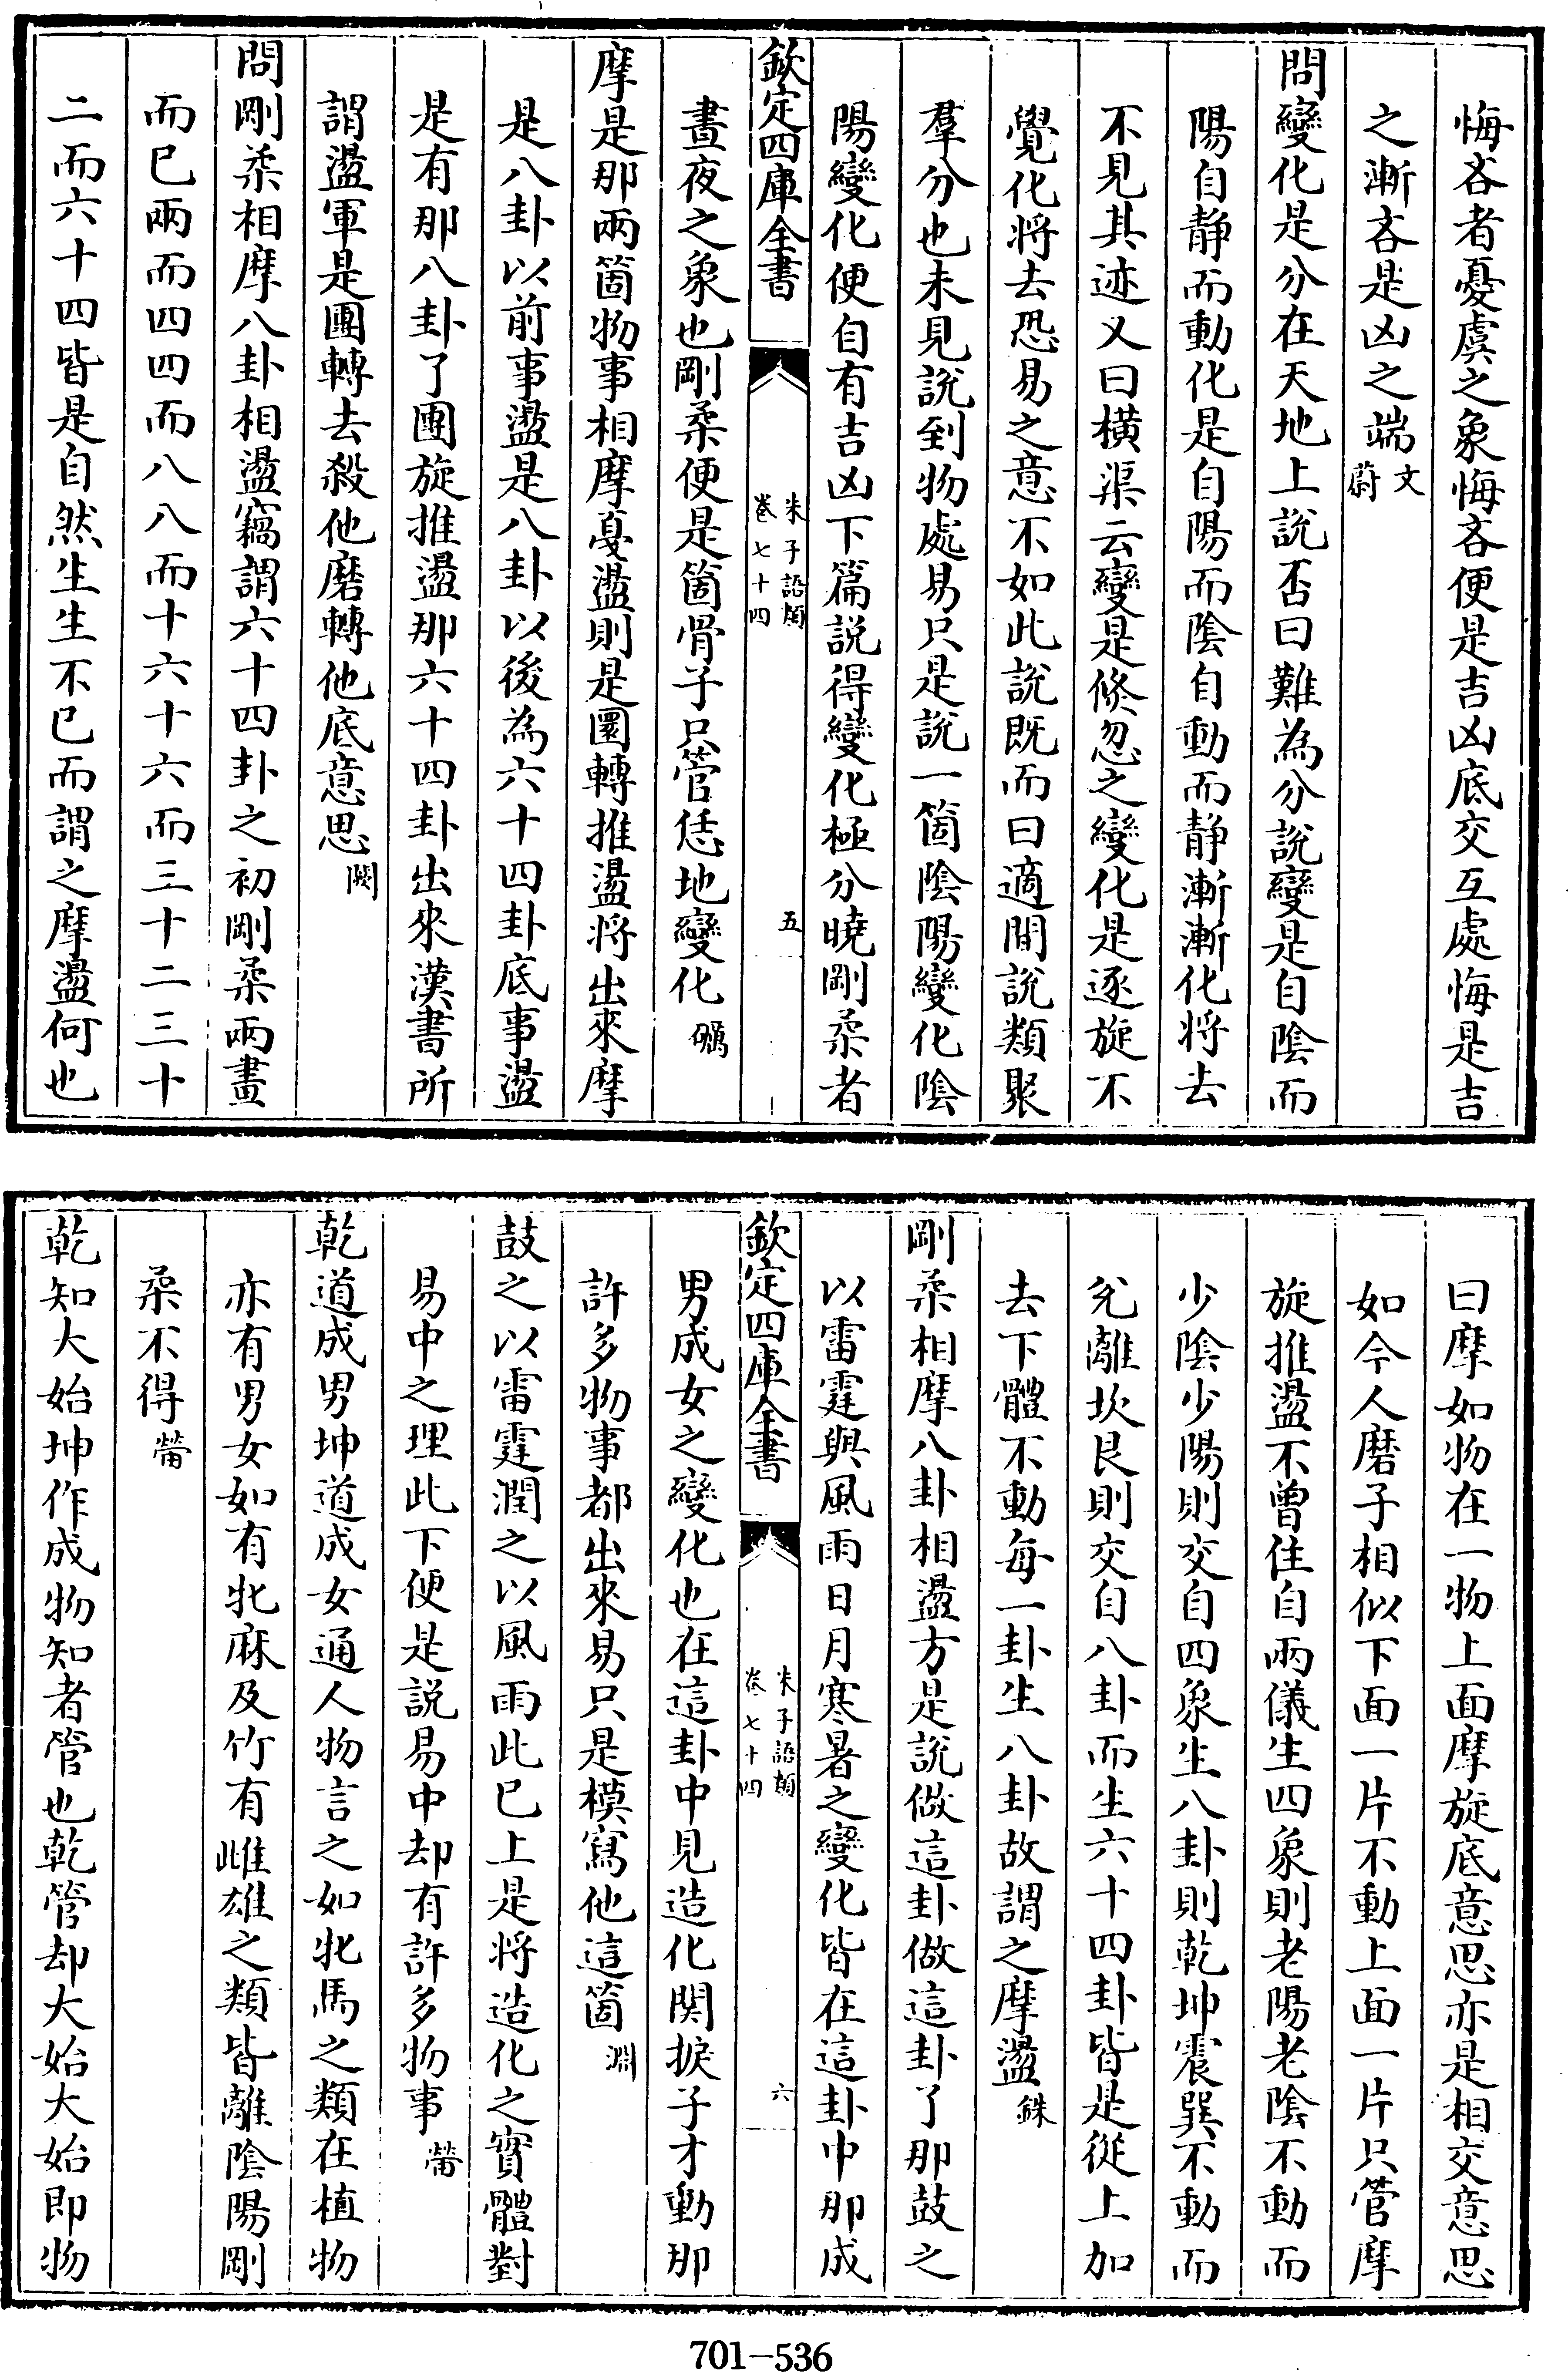 悔吝者憂虞之象悔吝便是吉凶底交互處悔是吉
之漸吝是凶之端文蔚
問變化是分在天地上說否曰難為分說變是自陰而
陽自静而動化是自陽而陰自動而静漸漸化将去
不見其迹又曰橫渠云變是倐忽之變化是逐旋不
覺化将去恐易之意不如此說既而曰適間說類聚
羣分也未見說到物處易只是說一箇陰陽變化陰
陽變化便自有吉凶下篇説得變化極分曉剛柔者
欽定四庫全書
朱子語類
卷七十四
五
晝夜之象也剛柔便是箇骨子只管恁地變化礪
摩是那兩箇物事相摩戞盪則是圜轉推盪将出來摩
是八卦以前事盪是八卦以後為六十四卦底事盪
是有那八卦了團旋推盪那六十四卦出來漢書所
謂盪軍是團轉去殺他磨轉他底意思闕
問剛柔相摩八卦相盪竊謂六十四卦之初剛柔兩畫
而已兩而四四而八八而十六十六而三十二三十
二而六十四皆是自然生生不已而謂之摩盪何也
曰摩如物在一物上面摩旋底意思亦是相交意思
如今人磨子相似下面一片不動上面一片只管摩
旋推盪不曾住自兩儀生四象則老陽老陰不動而
少陰少陽則交自四象生八卦則乾坤震巽不動而
兊離坎艮則交自八卦而生六十四卦皆是從上加
去下體不動每一卦生八卦故謂之摩盪銖
剛柔相摩八卦相盪方是說做這卦做這卦了那鼓之
以雷霆與風雨日月寒暑之變化皆在這卦中那成
欽定四庫全書
朱子語類
卷七十四
六
男成女之變化也在這卦中見造化関捩子才動那
許多物事都出來易只是模寫他這箇淵
鼓之以雷霆潤之以風雨此已上是将造化之實體對
易中之理此下便是説易中却有許多物事㽦
乾道成男坤道成女通人物言之如牝馬之類在植物
亦有男女如有牝麻及竹有雌雄之類皆離陰陽剛
柔不得㽦
乾知大始坤作成物知者管也乾管却大始大始即物
701-536